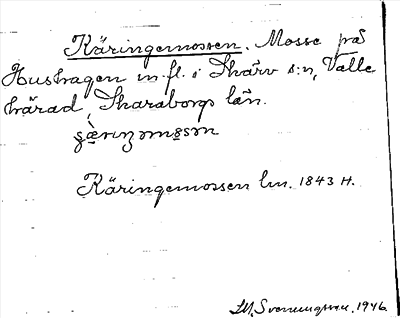 Käringemossen. Mosse på
Hushagen m. fl. i Skärv s:n, Valle
härad, Skaraborgs län.
Käringemossen lm. 1843 H.
1946.